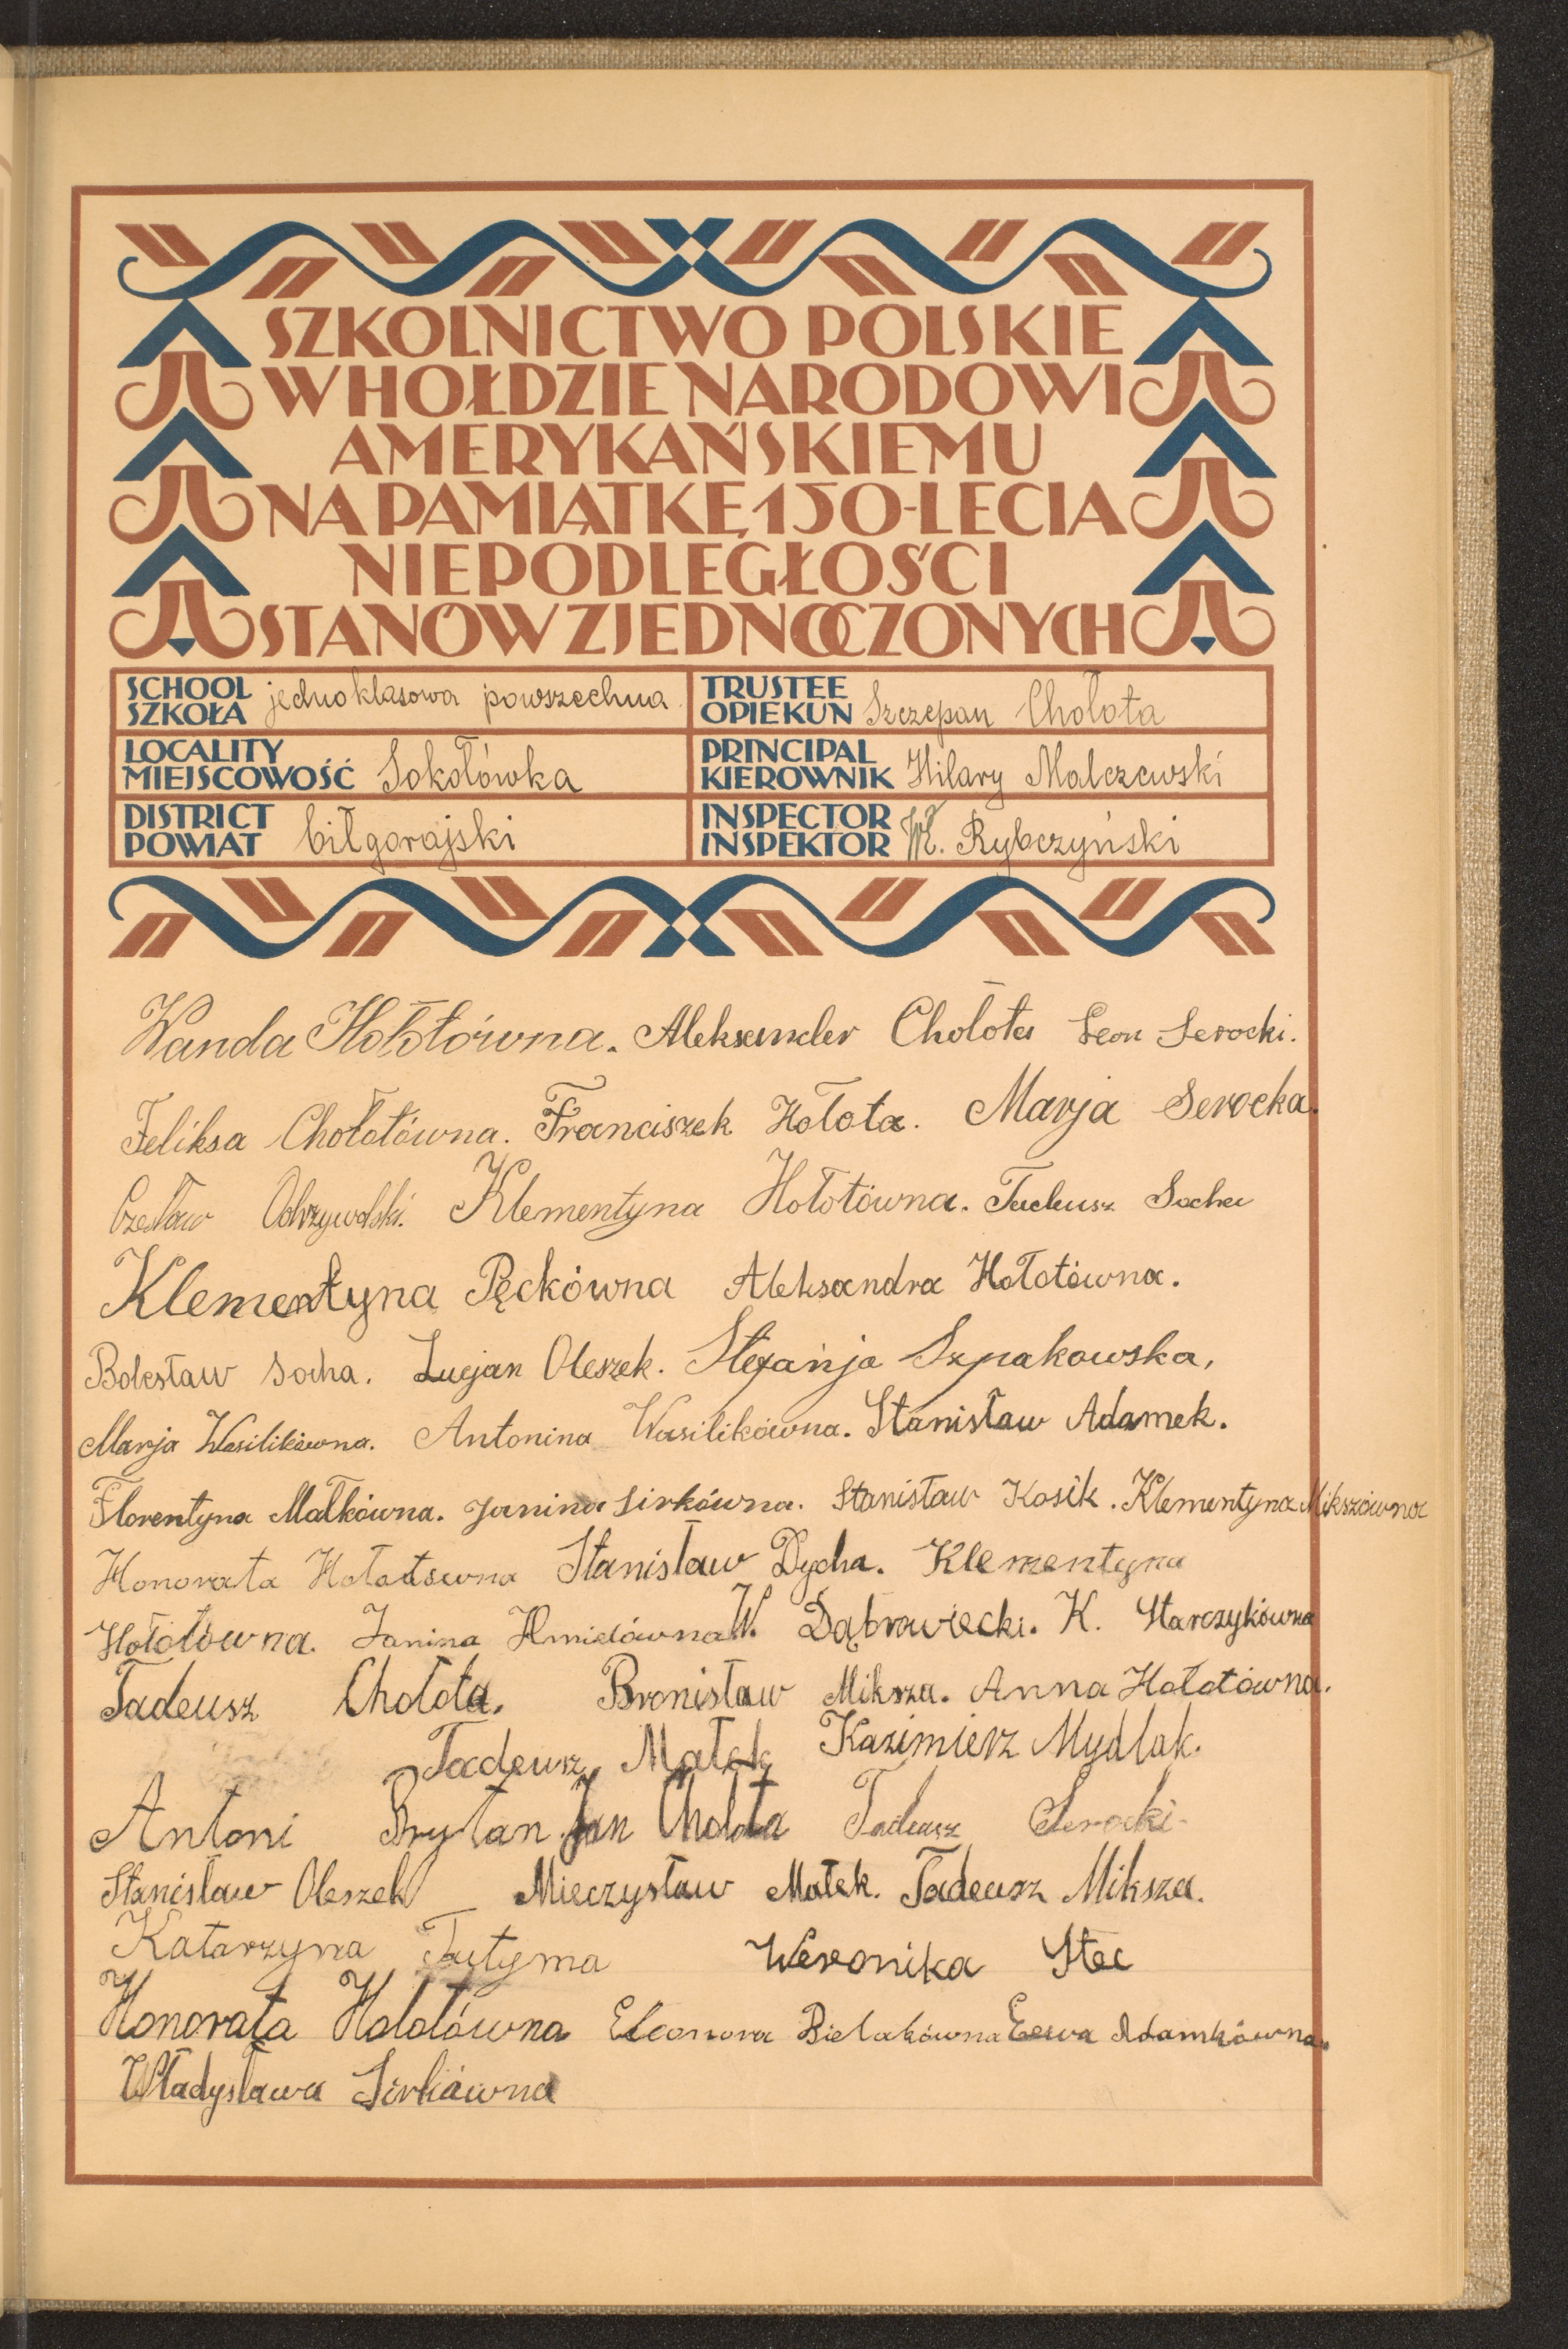 SZKOLNICTWO POLSKIE
W HOŁDZIE NARODOWI
AMERYKAŃSKIEMU
NA PAMIĄTKĘ 150-LECIA
NIEPODLEGŁOŚCI
STANÓW ZJEDNOCZONYCH
SCHOOL
SZKOŁA jednoklasowa powszechna
TRUSTEE
OPIEKUN Szczepan Chołota
LOCALITY
MIEJSCOWOŚĆ Sokołówka
PRINCIPAL
KIEROWNIK Hilary Malczewski
DISTRICT
POWIAT biłgorajski
INSPECTOR
INSPEKTOR Wł. Rybczyński
Wanda Hołotówna. Aleksander Chołota Leon Serocki.
Feliksa Chołotówna. Franciszek Hołota. Marja Serocka.
Czesław Odrzywolski. Klementyna Hołotówna. Tadeusz Socha
Klementyna Pęckówna Aleksandra Hołotówna.
Bolesław Socha. Lucjan Oleszek. Stefanja Szpakowska,
Marja Wasilikówna. Antonina Wasilikówna. Stanisław Adamek.
Florentyna Małkówna. Janina Sirkówna. Stanisław Kosik. Klementyna Mikszówna
Honorata Hołotówna Stanisław Dycha. Klementyna
Hołotówna. Janina Hmielówna W. Dąbrowiecki. K. Starczykówna
Tadeusz Chołota. Bronisław Miksza. Anna Hołotówna.
Tadeusz Małek Kazimierz Mydlak.
Antoni Brytan. Jan Chołota Tadeusz Serocki.
Stanisław Oleszek Mieczysław Małek. Tadeusz Miksza.
Katarzyna Tutyma Weronika Stec
Honorata Hołotówna Eleonora Bielakówna Ewa Adamkówna.
Władysława Sirkówna